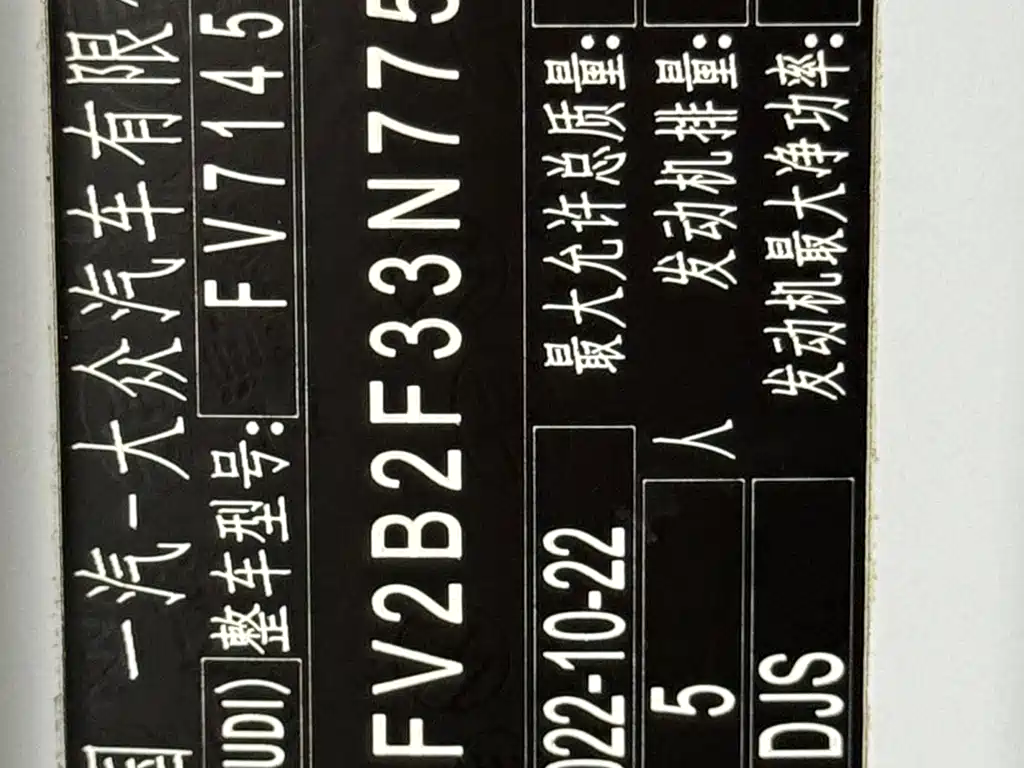 国 一汽-大众汽车有限
UDI) 整车型号: FV7145
FV2B2F33N775
022-10-22 最大允许总质量:
5 人 发动机排量:
DJS 发动机最大净功率: